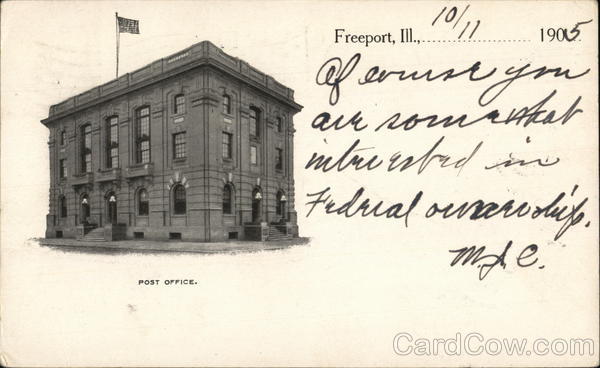 10/11
Freeport, Ill., 1905
Of course you
are somewhat
interested in
Fedreal ownership.
M.J.C.
POST OFFICE.
CardCow.com